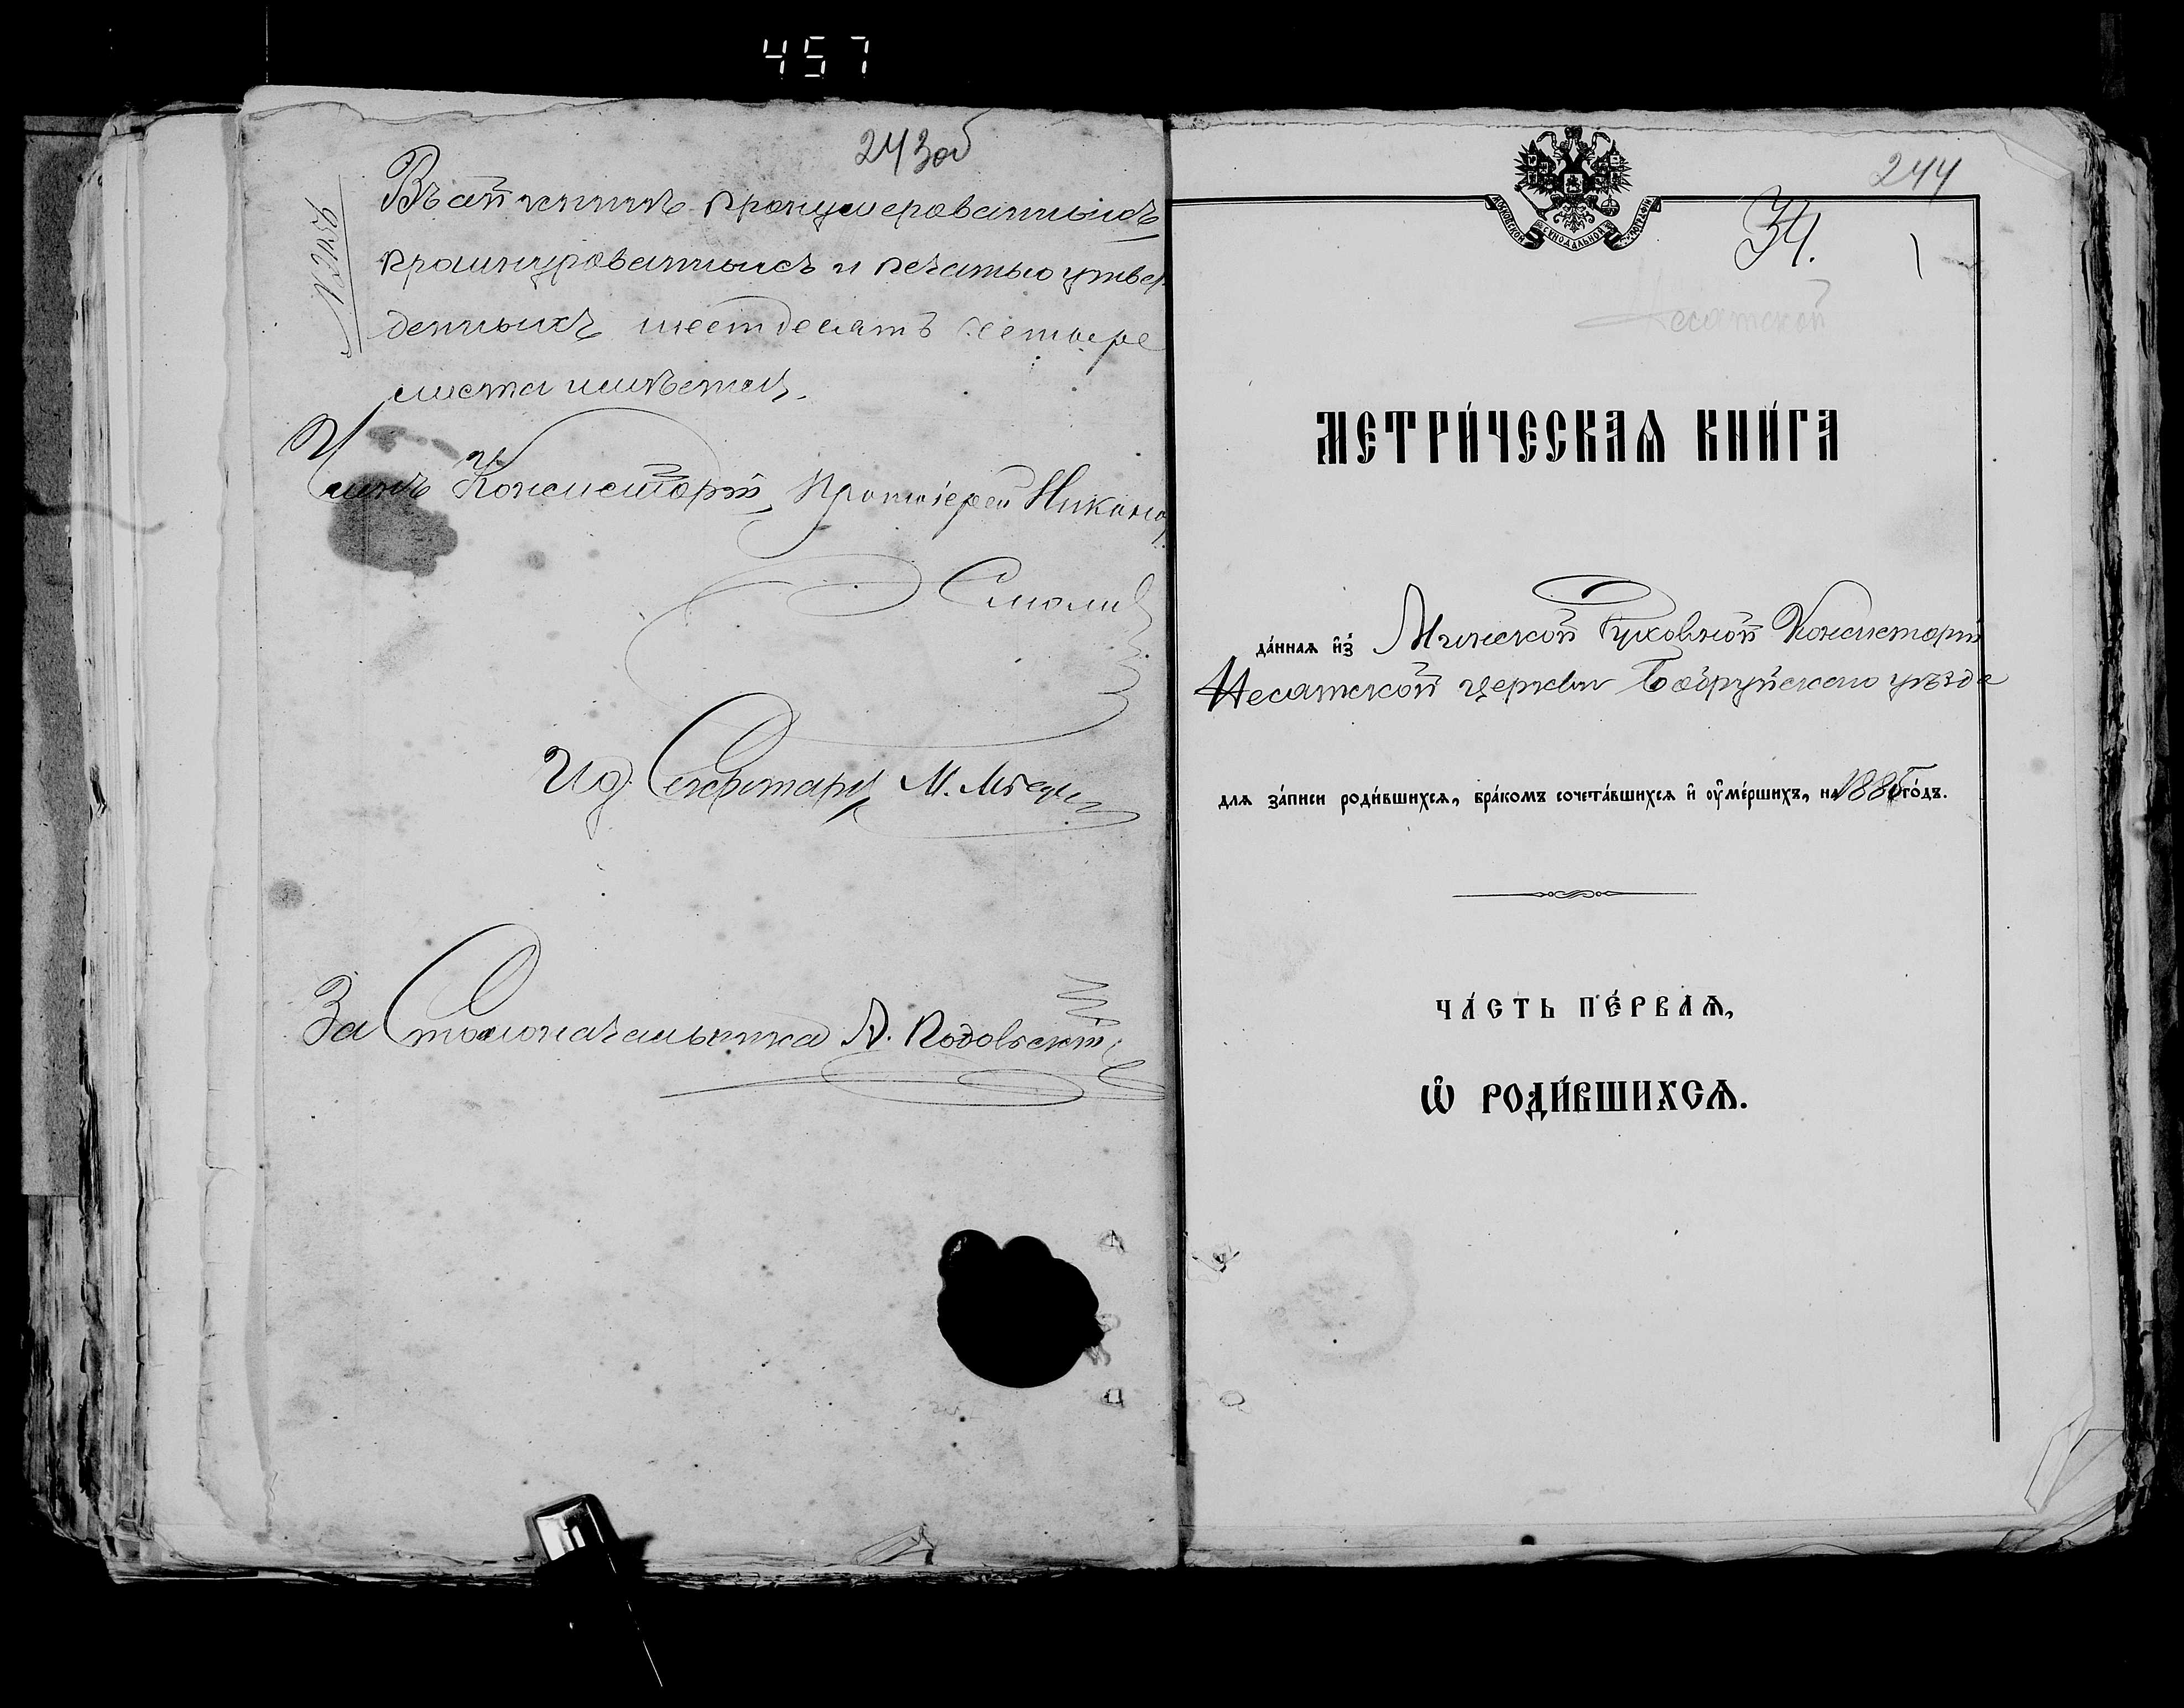 457
243 об
№ 2456
Въ сей книгѣ пронумерованныхъ
прошнурованныхъ и печатью утвер
денныхъ шестдесятъ четыре
листа имѣется.
Членъ Консисторіи, Протоіерей Никано
Смолич
И. д. Секретаря М.
За Столоначальника А.
244
34.
МОСКОВСКОЙ СѴНОДАЛЬНОЙ ТИПОГРАФІИ
Несятской
МЕТРИ́ЧЕСКАѦ КНИ́ГА
да́ннаѧ и҆з̾ Минской Духовной Консисторіи
Несятской церкви Бобруйскаго уѣзда
длѧ за́писи роди́вшихсѧ, бра́комъ сочета́вшихсѧ и҆ ᲂу҆ме́ршихъ, на 1886 го́дъ.
ЧА́СТЬ ПЕ́РВАѦ,
Ѡ҆ РОДИ́ВШИХСѦ.